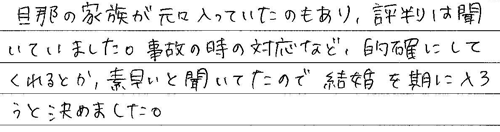 旦那の家族が元々入っていたのもあり，評判は聞
いていました。事故の時の対応など，的確にして
くれるとか，素早いと聞いてたので 結婚を期に入ろ
うと決めました。